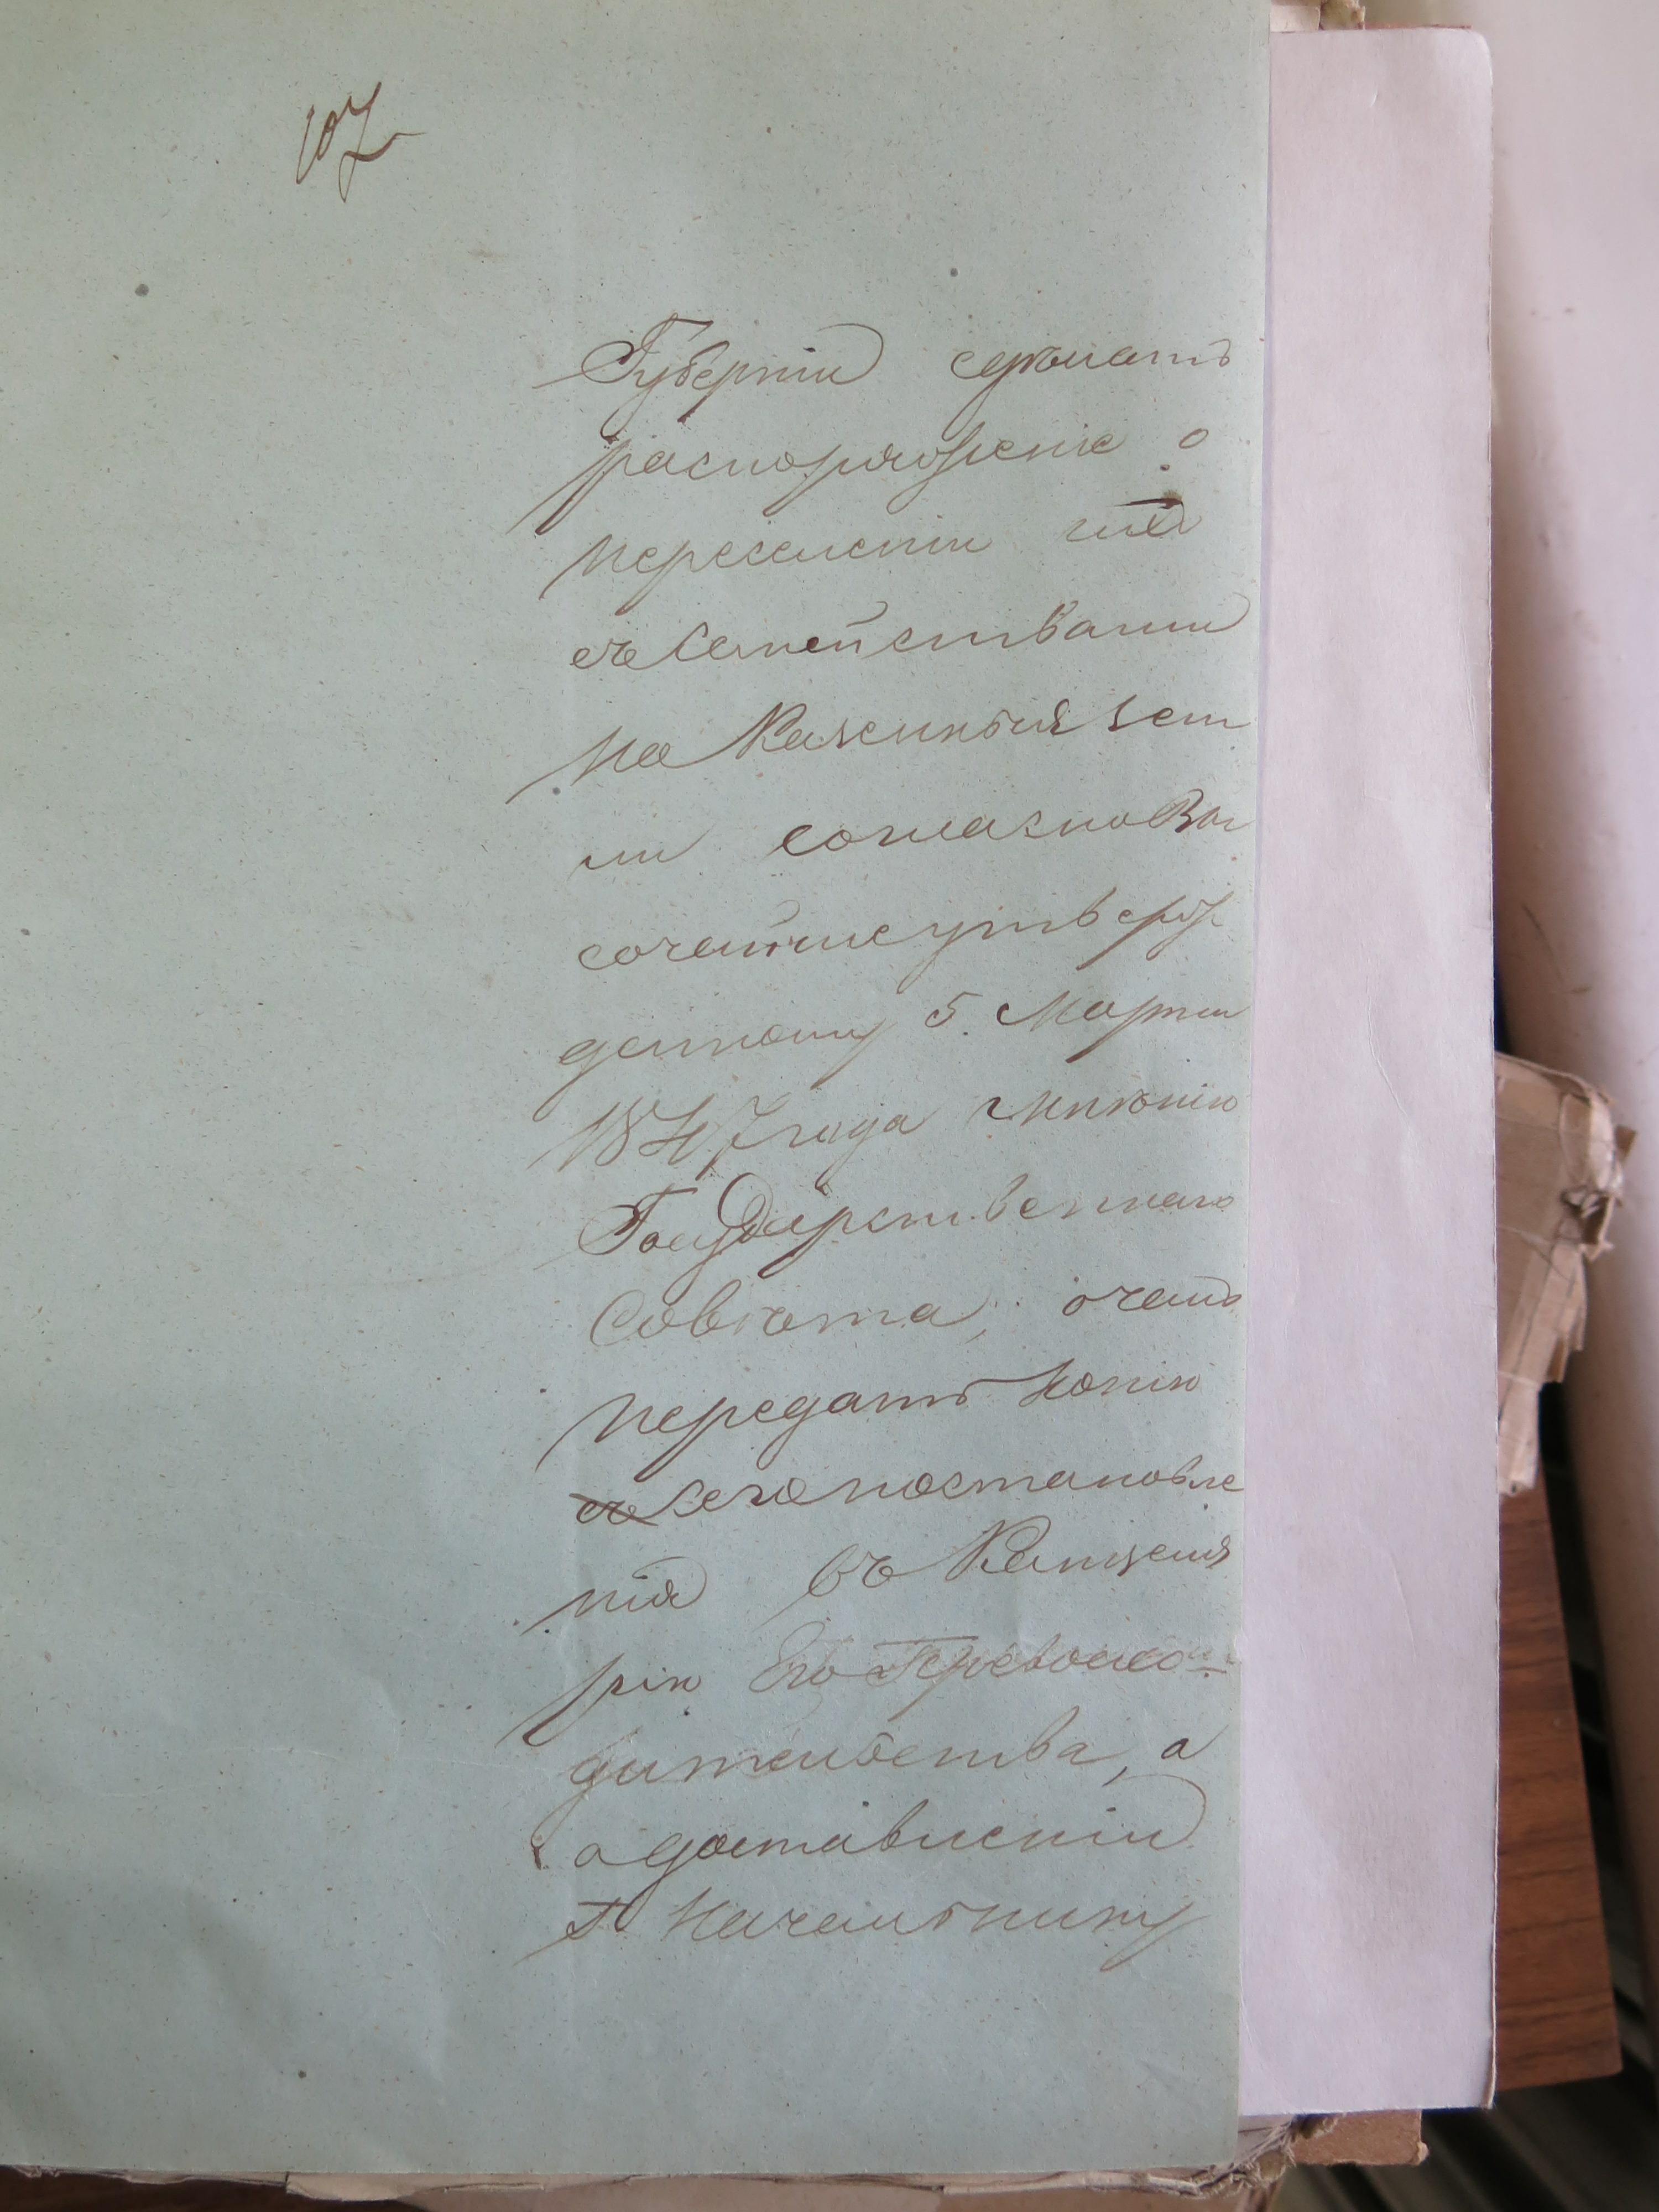 107
Губерніи сдѣлать
распоряженіе о
переселеніи ихъ
съ семействами
на Казенныя зем
ли согласно Вы
сочайше утверж
денному 5. Марта
1847 года мнѣнію
Государственнаго
Совѣта, о чемъ
передать копію
съ сего постановле
нія въ Канцеля
рію Его Превосхо
дительства, а
о доставленіи
Г. Начальнику